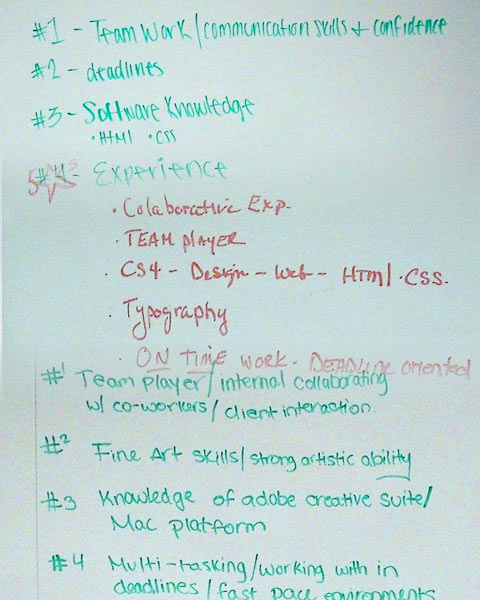 #1 - Team Work/communication skills + confidence
#2 - deadlines
#3 - Software Knowledge
• HTML • CSS
#4 - Experience
• Colaborative Exp.
• TEAM PLAYER
• CS4 - Design - Web - HTML • CSS.
• Typography
• ON TIME WORK - DEADLINE oriented
#1 Team player/internal collaborating
w/ co-workers/client interaction
#2 Fine Art skills/strong artistic ability
#3 Knowledge of adobe creative suite/
Mac platform
#4 Multi-tasking/working with in
deadlines/fast pace environments